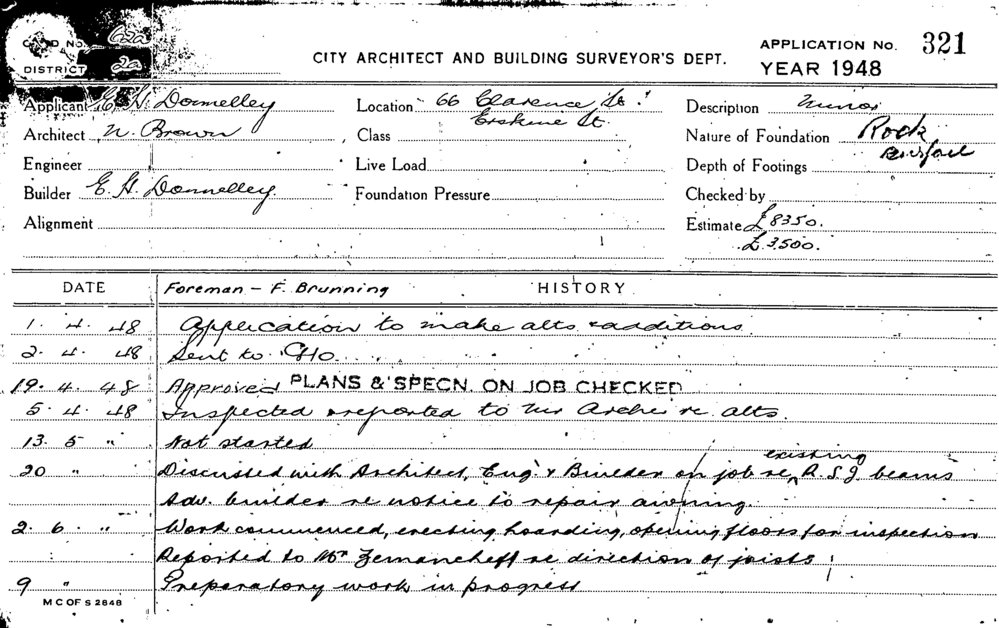 CARD NO. 62a
DISTRICT 2a
CITY ARCHITECT AND BUILDING SURVEYOR'S DEPT.
APPLICATION No. 321
YEAR 1948
Applicant E. H. Donnelley
Architect N. Brown
Engineer
Builder E. H. Donnelley
Alignment
Location 66 Clarence St.
Erskine St.
Class
Live Load
Foundation Pressure
Description Minor
Nature of Foundation Rock
Depth of Footings
Checked by
Estimate £8350.
£3,500.
DATE Foreman - F. Brunning HISTORY
1. 4. 48 Application to make alts & additions
2. 4. 48 Sent to CHO
19. 4. 48 Approved PLANS & SPECN. ON JOB CHECKED
5. 4. 48 Inspected & reported to Mr Archer re alts.
13. 5 " Not started
20 " Discussed with Architect, Eng. & Builder on job re existing R.S.J. beams
Adv. builder re notice to repair awning.
2. 6. " Work commenced, erecting hoarding, opening floors for inspection
Reported to Mr Zemancheff re direction of joists
9 " Preparatory work in progress
M C OF S 2848